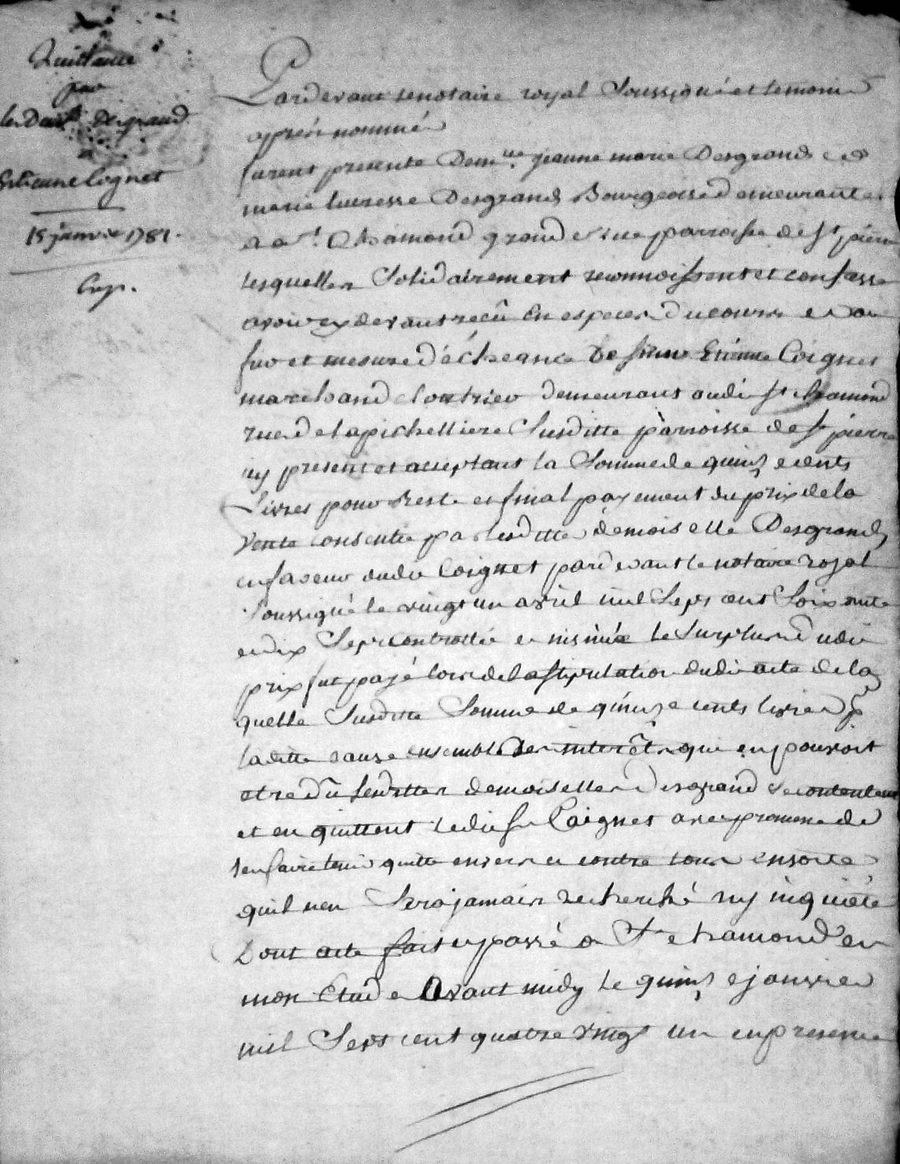 Quittance
par
les Dem.lles Desgrand
a
Estienne Cognet
15 janvier 1781.
Exp.
Pardevant le notaire royal Soussigné et temoins
après nommés
furent presente Dem.lle jeanne marie Desgrand et
marie Desgrand Bourgeoises demeurantes
a St. Chamond grande rue parroisse de St pierre
lesquelles Solidairement reconnoissent et confesse
avoir cydevant recû En especes du cours et au
fur et mesure d'écheance De sieur Etienne Coignet
marchand cloutrier demeurant audit St chamond
rue de lapichelliere Susditte parroisse de St pierre
icy present et acceptant la Somme de quinze cents
Livres pour Reste et final payement du prix de la
Vente consentie par lesditte demoiselle Desgrand
en faveur dudit Coignet pardevant le notaire royal
Soussigné le vingt un avril mil Sept cent Soixante
et dix Sept controllée et insinué le Surplus dudit
prix fut payé lors de la Stipulation dudit acte de la
quelle Susditte Somme de quinze cents livres p.
laditte cause ensemble des interêts qui en pouvoit
etre dû lesdittes demoiselles Desgrand se contentent
et en quittent ledit Sr Coignet avec promesse de
len faire tenir quitte envers et contre tous ensorte
quil nen Sera jamais recherché ny inquiété
Dont acte fait et passé a St chamond en
mon Etude Avant midy le quinze janvier
mil Sept cent quatre vingt un en presence